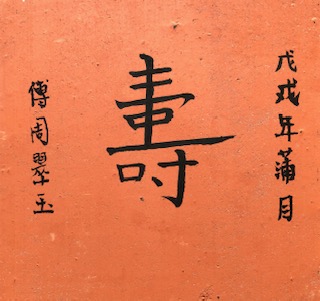 戊戌年蒲月
壽
傅周翠玉